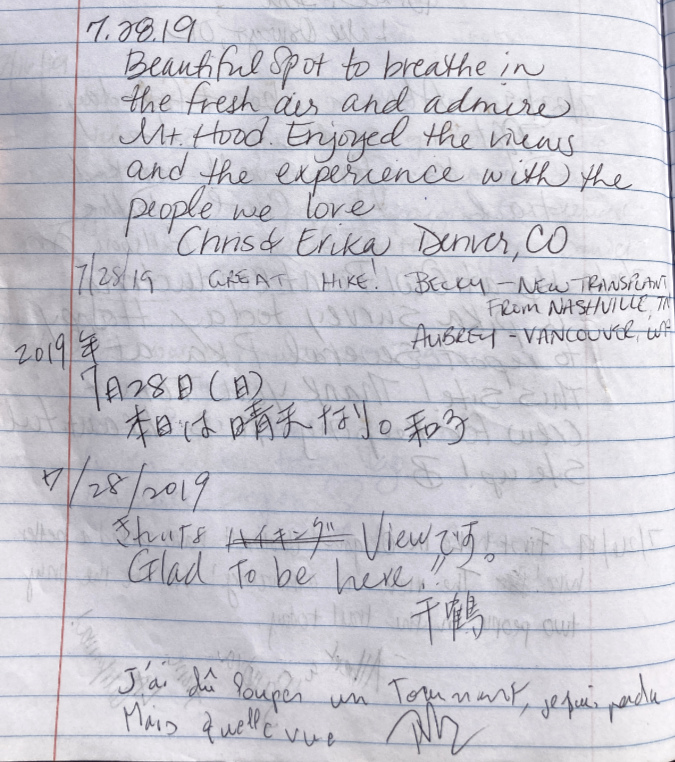 7.28.19
Beautiful Spot to breathe in
the fresh air and admire
Mt. Hood. Enjoyed the views
and the experience with the
people we love
Chris & Erika Denver, CO
7/28/19 GREAT HIKE! BECKY - NEW TRANSPLANT
FROM NASHVILLE, TN
AUBREY - VANCOUVER, WA
2019年
7月28日(日)
本日は晴天なり。和子
7/28/2019
きれいな ハイキング Viewです。
Glad to be here!!
千鶴
J'ai dû louper un Tournant, je suis perdu
Mais quelle vue